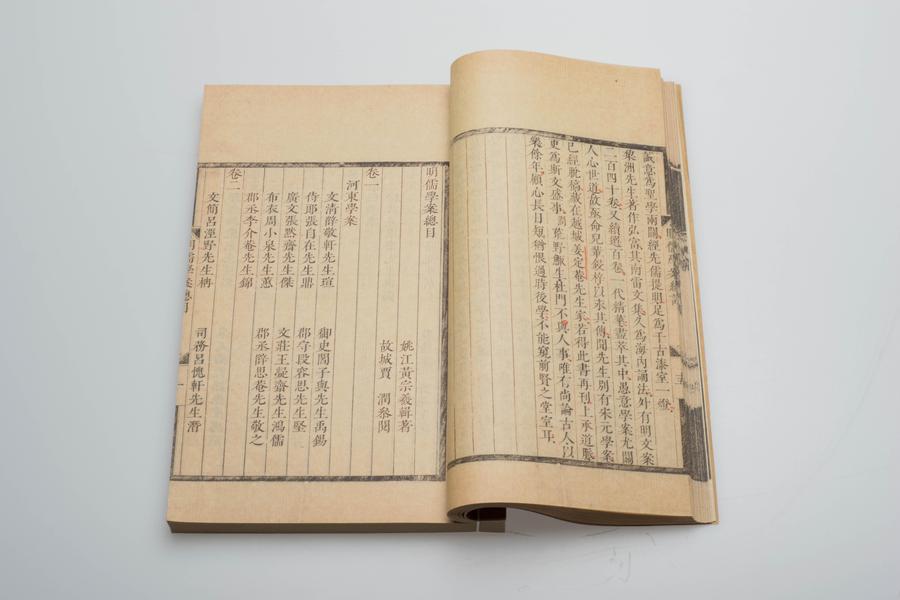 誠意爲聖學兩關經先儒提唱足爲千古漆室一燈
梨洲先生著作弘富其南雷文集久爲海內誦法外有明文案
二百四十卷又續選百卷一代精華盡萃其中愚意學案尤關
人心世道故亟命兒輩鋟梓以求其傳聞先生別有宋元學案
已經脫稿藏在越城姜定菴先生家若得此書再刊上承道脈
更爲斯文盛事野鯫生杜門不與人事唯有尚論古人以
樂餘年顧心長日短猶恨過時後學不能窺前賢之堂室耳
明儒學案總目
姚江黃宗羲輯著
故城賈 潤參閱
卷一
河東學案
文清薛敬軒先生瑄 御史閻子與先生禹錫
侍郎張自在先生鼎 郡守段容思先生堅
廣文張默齋先生傑 文莊王凝齋先生鴻儒
布衣周小泉先生蕙 郡丞薛思菴先生敬之
郡丞李介菴先生錦
卷二
文簡呂涇野先生柟 司務呂愧軒先生潛
明儒學案總目
一